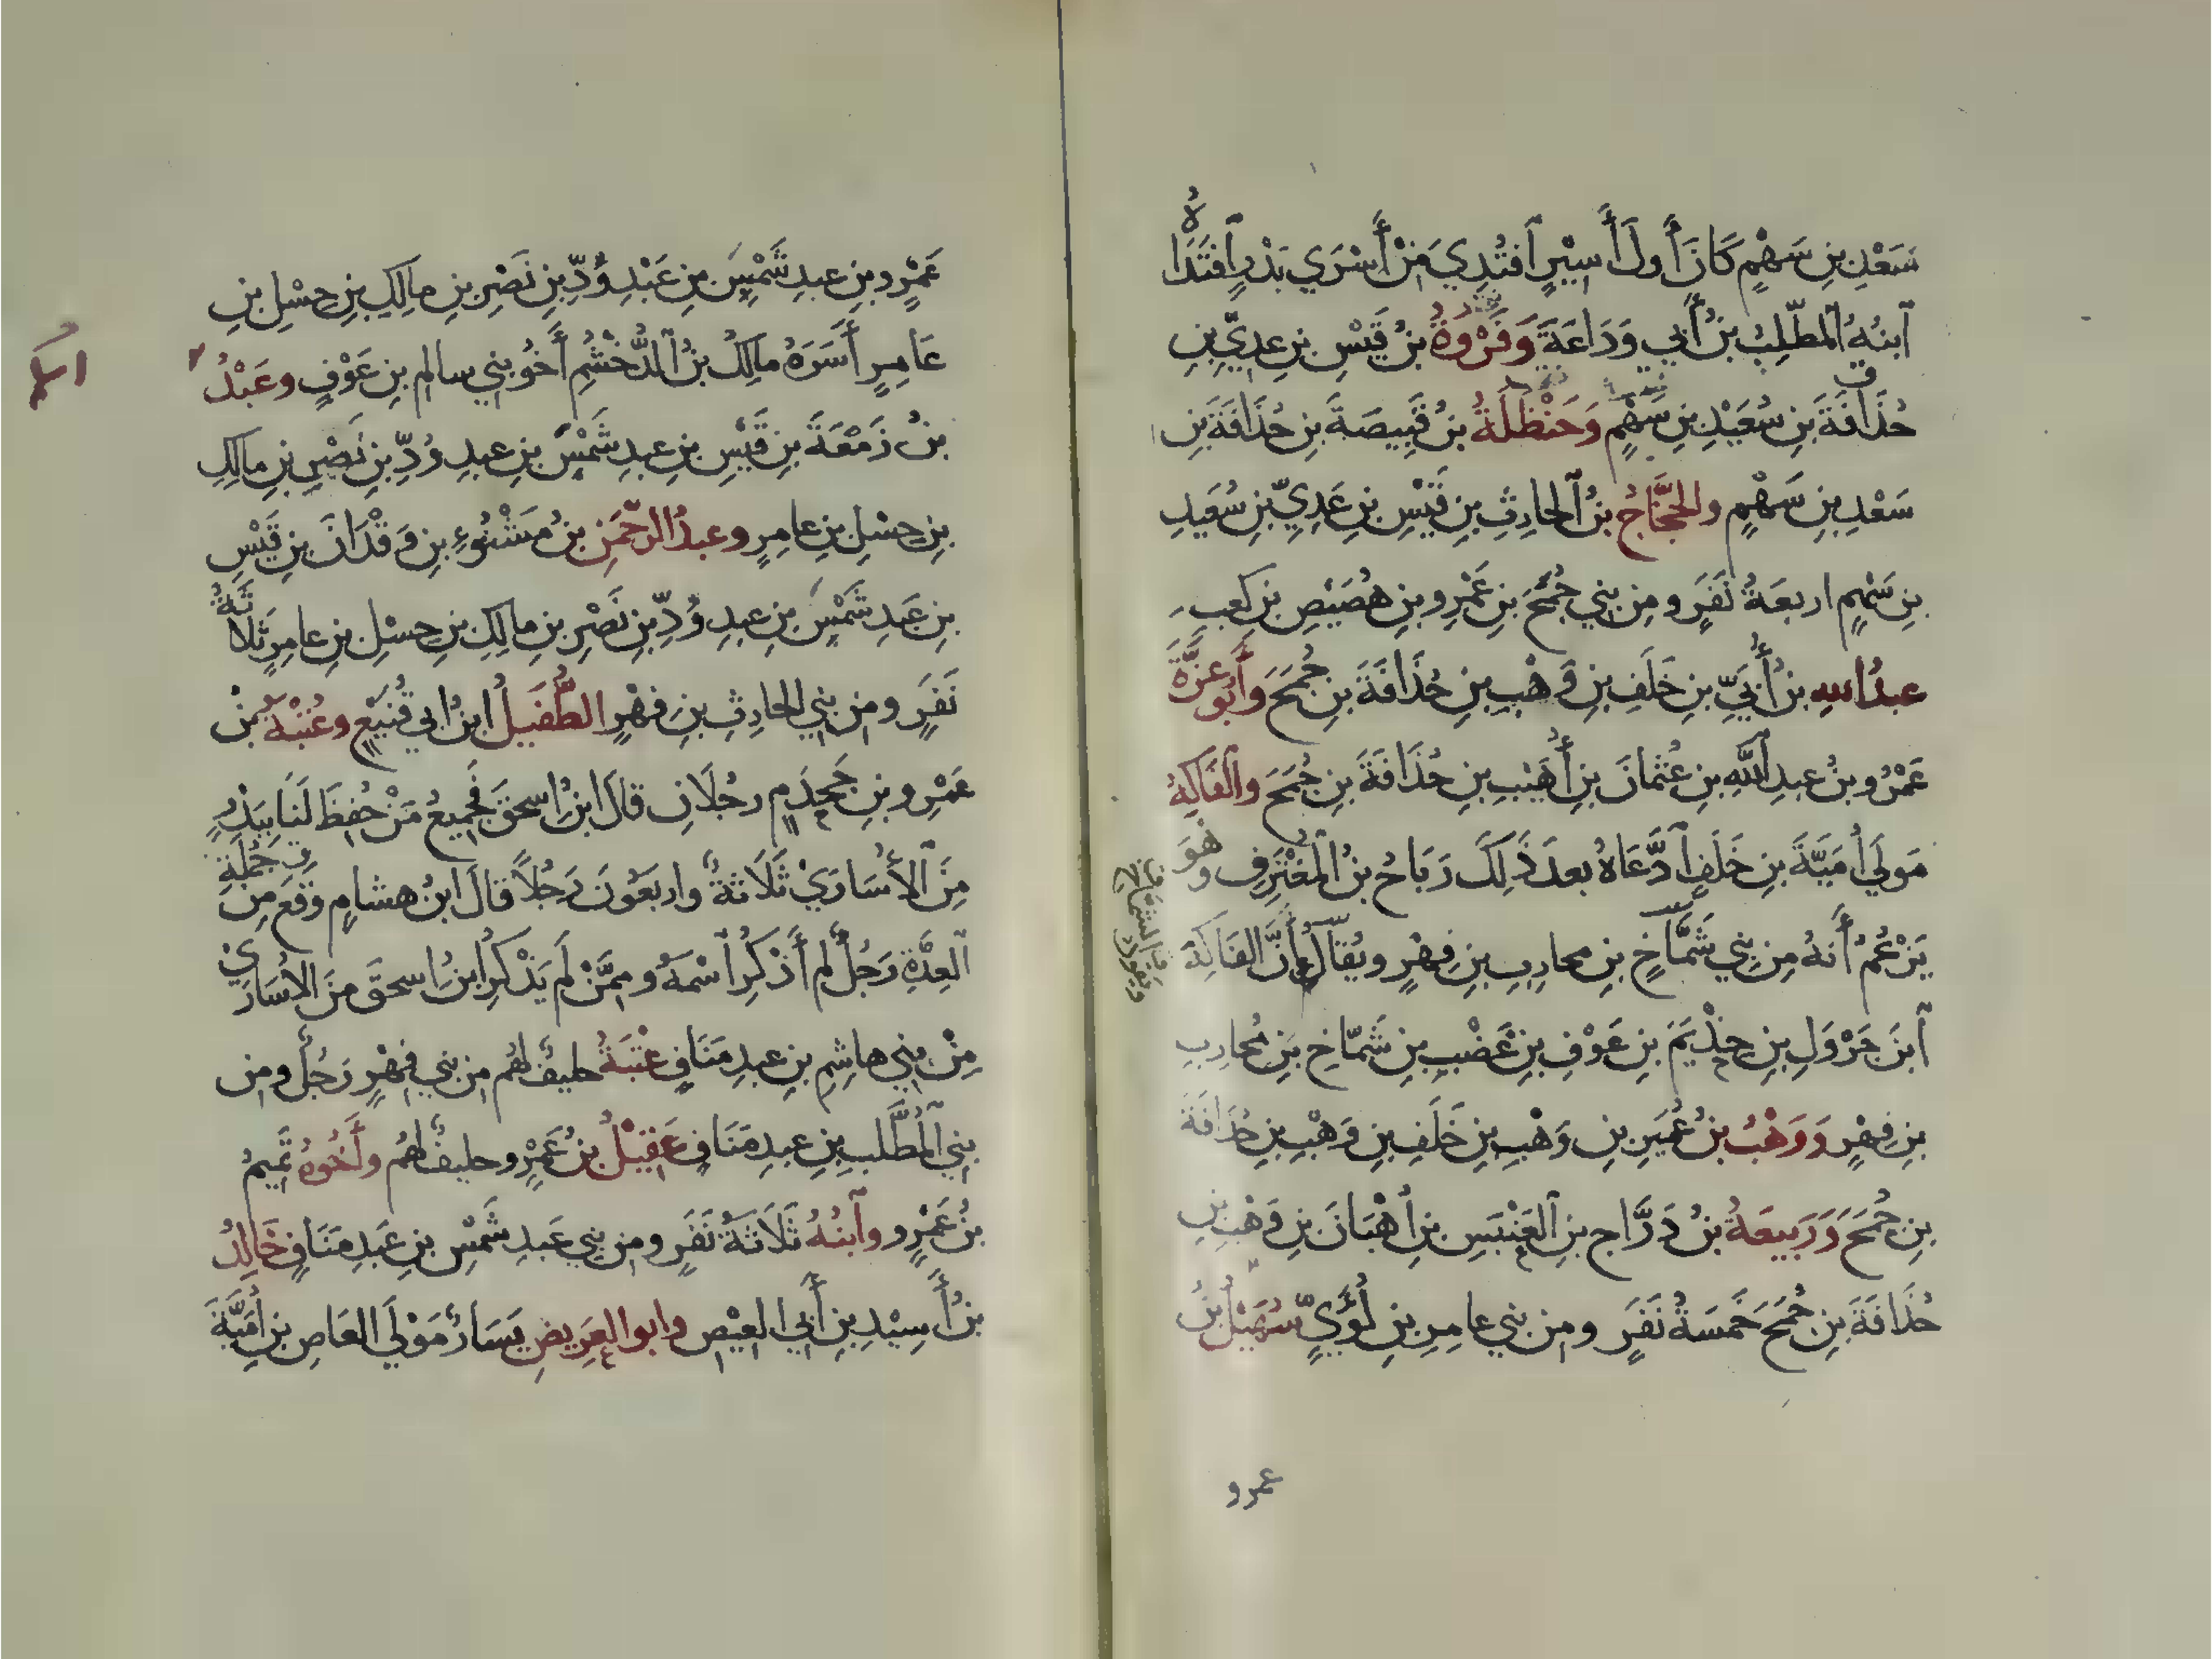 سَعْدِ بنِ سَهْمٍ كَانَ أَولَ أَسِيْرٍ ٱفتُدِيَ مِنْ أَسْرَي بَدْرٍ ٱفتَدَاهُ
ٱبنُهُ ٱلمطّلِبُ بنُ أَبي وَدَاعَةَ وَفَرْوَةُ بنُ قَيْسِ بنِ عدِيِّ بنِ
حُذَافَةَ بنِ سُعَيْدِ بنِ سَهْمٍ وَحَنْظَلَةُ بنُ قَبِيصَةَ بنِ حُذَافَةَ بنِ
سَعْدِ بنِ سَهْمٍ والحَجَّاجُ بنُ ٱلحارِثِ بنِ قَيْسِ بنِ عَدِيِّ بنِ سُعَيدِ
بنِ سَهْمٍ اربعَةُ نَفَرٍ ومِن بَنِي جُمَحَ بنِ عَمْرِو بنِ هُصَيْصِ بنِ كعبٍ
عبدُ اللهِ بنُ أُبَيِّ بنِ خَلَفِ بنِ وَهْبِ بنِ حُذَافَةَ بنِ جُمَحَ وَأَبُو عَزَّةَ
عَمْرُو بنُ عبدِ ٱللَّهِ بنِ عُثمانَ بنِ أُهَيْبِ بنِ حُذَافَةَ بنِ جُمَحَ وٱلفَاكِهُ
مَولَي أُمَيّةَ بنِ خَلَفٍ ٱدَّعَاهُ بعدَ ذَلِكَ رَبَاحُ بنُ ٱلمغْتَرِفِ وهُوَ
يَزْعُمُ أَنهُ مِن بَنِي شَمَّاخِ بنِ محاربِ بنِ فِهْرٍ ويُقالُ إنَّ الفَاكِهَ
ٱبنَ جَرْوَلِ بنِ حِذْيَمَ بنِ عَوْفِ بنِ غَضْبِ بنِ شَمّاخِ بنِ مُحاربِ
بنِ فِهْرٍ وَوَهْبُ بنُ عُمَيرِ بنِ وَهْبِ بنِ خَلَفِ بنِ وَهْبِ بنِ حُذَافَةَ
بنِ جُمَحَ وَرَبِيعَةُ بنُ دَرَّاجِ بنِ ٱلعَنْبَسِ بنِ أُهْبَانَ بنِ وَهْبِ بنِ
حُذَافَةَ بنِ جُمَحَ خَمسَةُ نَفَرٍ ومِن بَنِي عامرِ بنِ لُؤَيٍّ سُهَيْلُ بنُ
عمرو
عَمْرِو بنِ عبدِ شَمْسِ بنِ عَبْدِ وُدِّ بنِ نَصْرِ بنِ مالِكِ بنِ حِسْلِ بنِ
عَامِرٍ أَسَرَهُ مالِكُ بنُ ٱلدُّخْشُمِ أَخُو بَنِي سالمِ بنِ عَوْفٍ وعَبْدُ
بنُ زَمْعَةَ بنِ قَيْسِ بنِ عبدِ شَمْسِ بنِ عبدِ وُدِّ بنِ نَصْرِ بنِ مالِكِ
بنِ حِسْلِ بنِ عامِرٍ وعبدُ الرّحْمَنِ بنُ مَشْنُوءِ بنِ وَقْدَانَ بنِ قَيْسِ
بنِ عَبدِ شَمْسِ بنِ عبدِ وُدِّ بنِ نَصْرِ بنِ مالِكِ بنِ حِسْلِ بنِ عامِرٍ ثَلاثَةُ
نَفَرٍ ومِن بَنِي الحارِثِ بنِ فِهْرٍ الطُّفَيلُ ابنُ ابي قُنَيْعٍ وعُتْبَةُ بنُ
عَمْرِو بنِ جَحْدَمٍ رجُلَانِ قالَ ابنُ اسحقَ فَجَمِيعُ مَنْ حُفِظَ لَنَا بِبَدْرٍ
مِنَ ٱلأُسَارَيْ ثَلَاثةٌ واربَعُونَ رَجُلاً قالَ ابنُ هشامٍ وَقَعَ مِن جُمْلَةِ
ٱلعِدَّةِ رَجُلٌ لم أَذْكُرِ ٱسْمَهُ وممَّنْ لَم يَذْكُرِ ابنُ اسحقَ مِنَ الاُسَارَيْ
مِنْ بَنِي هاشِمِ بنِ عبدِ مَنَافٍ عُتْبَةُ حليفٌ لهُم مِن بَنِي فِهْرٍ رَجُلٌ ومِن
بَنِي ٱلمُطَّلبِ بنِ عبدِ مَنَافٍ عَقِيْلُ بنُ عَمْرٍو حليفٌ لهُم وأَخُوهُ تَميمُ
بنُ عَمْرٍو وٱبنُهُ ثَلَاثَةُ نَفَرٍ ومِن بَنِي عَبدِ شَمْسِ بنِ عَبدِ مَنَافٍ خَالِدُ
بنُ أَسِيْدِ بنِ أَبي العِيْصِ وابو العَرِيضِ يَسَارٌ مَوْلَي العَاصِ بنِ أُمَيَّةَ